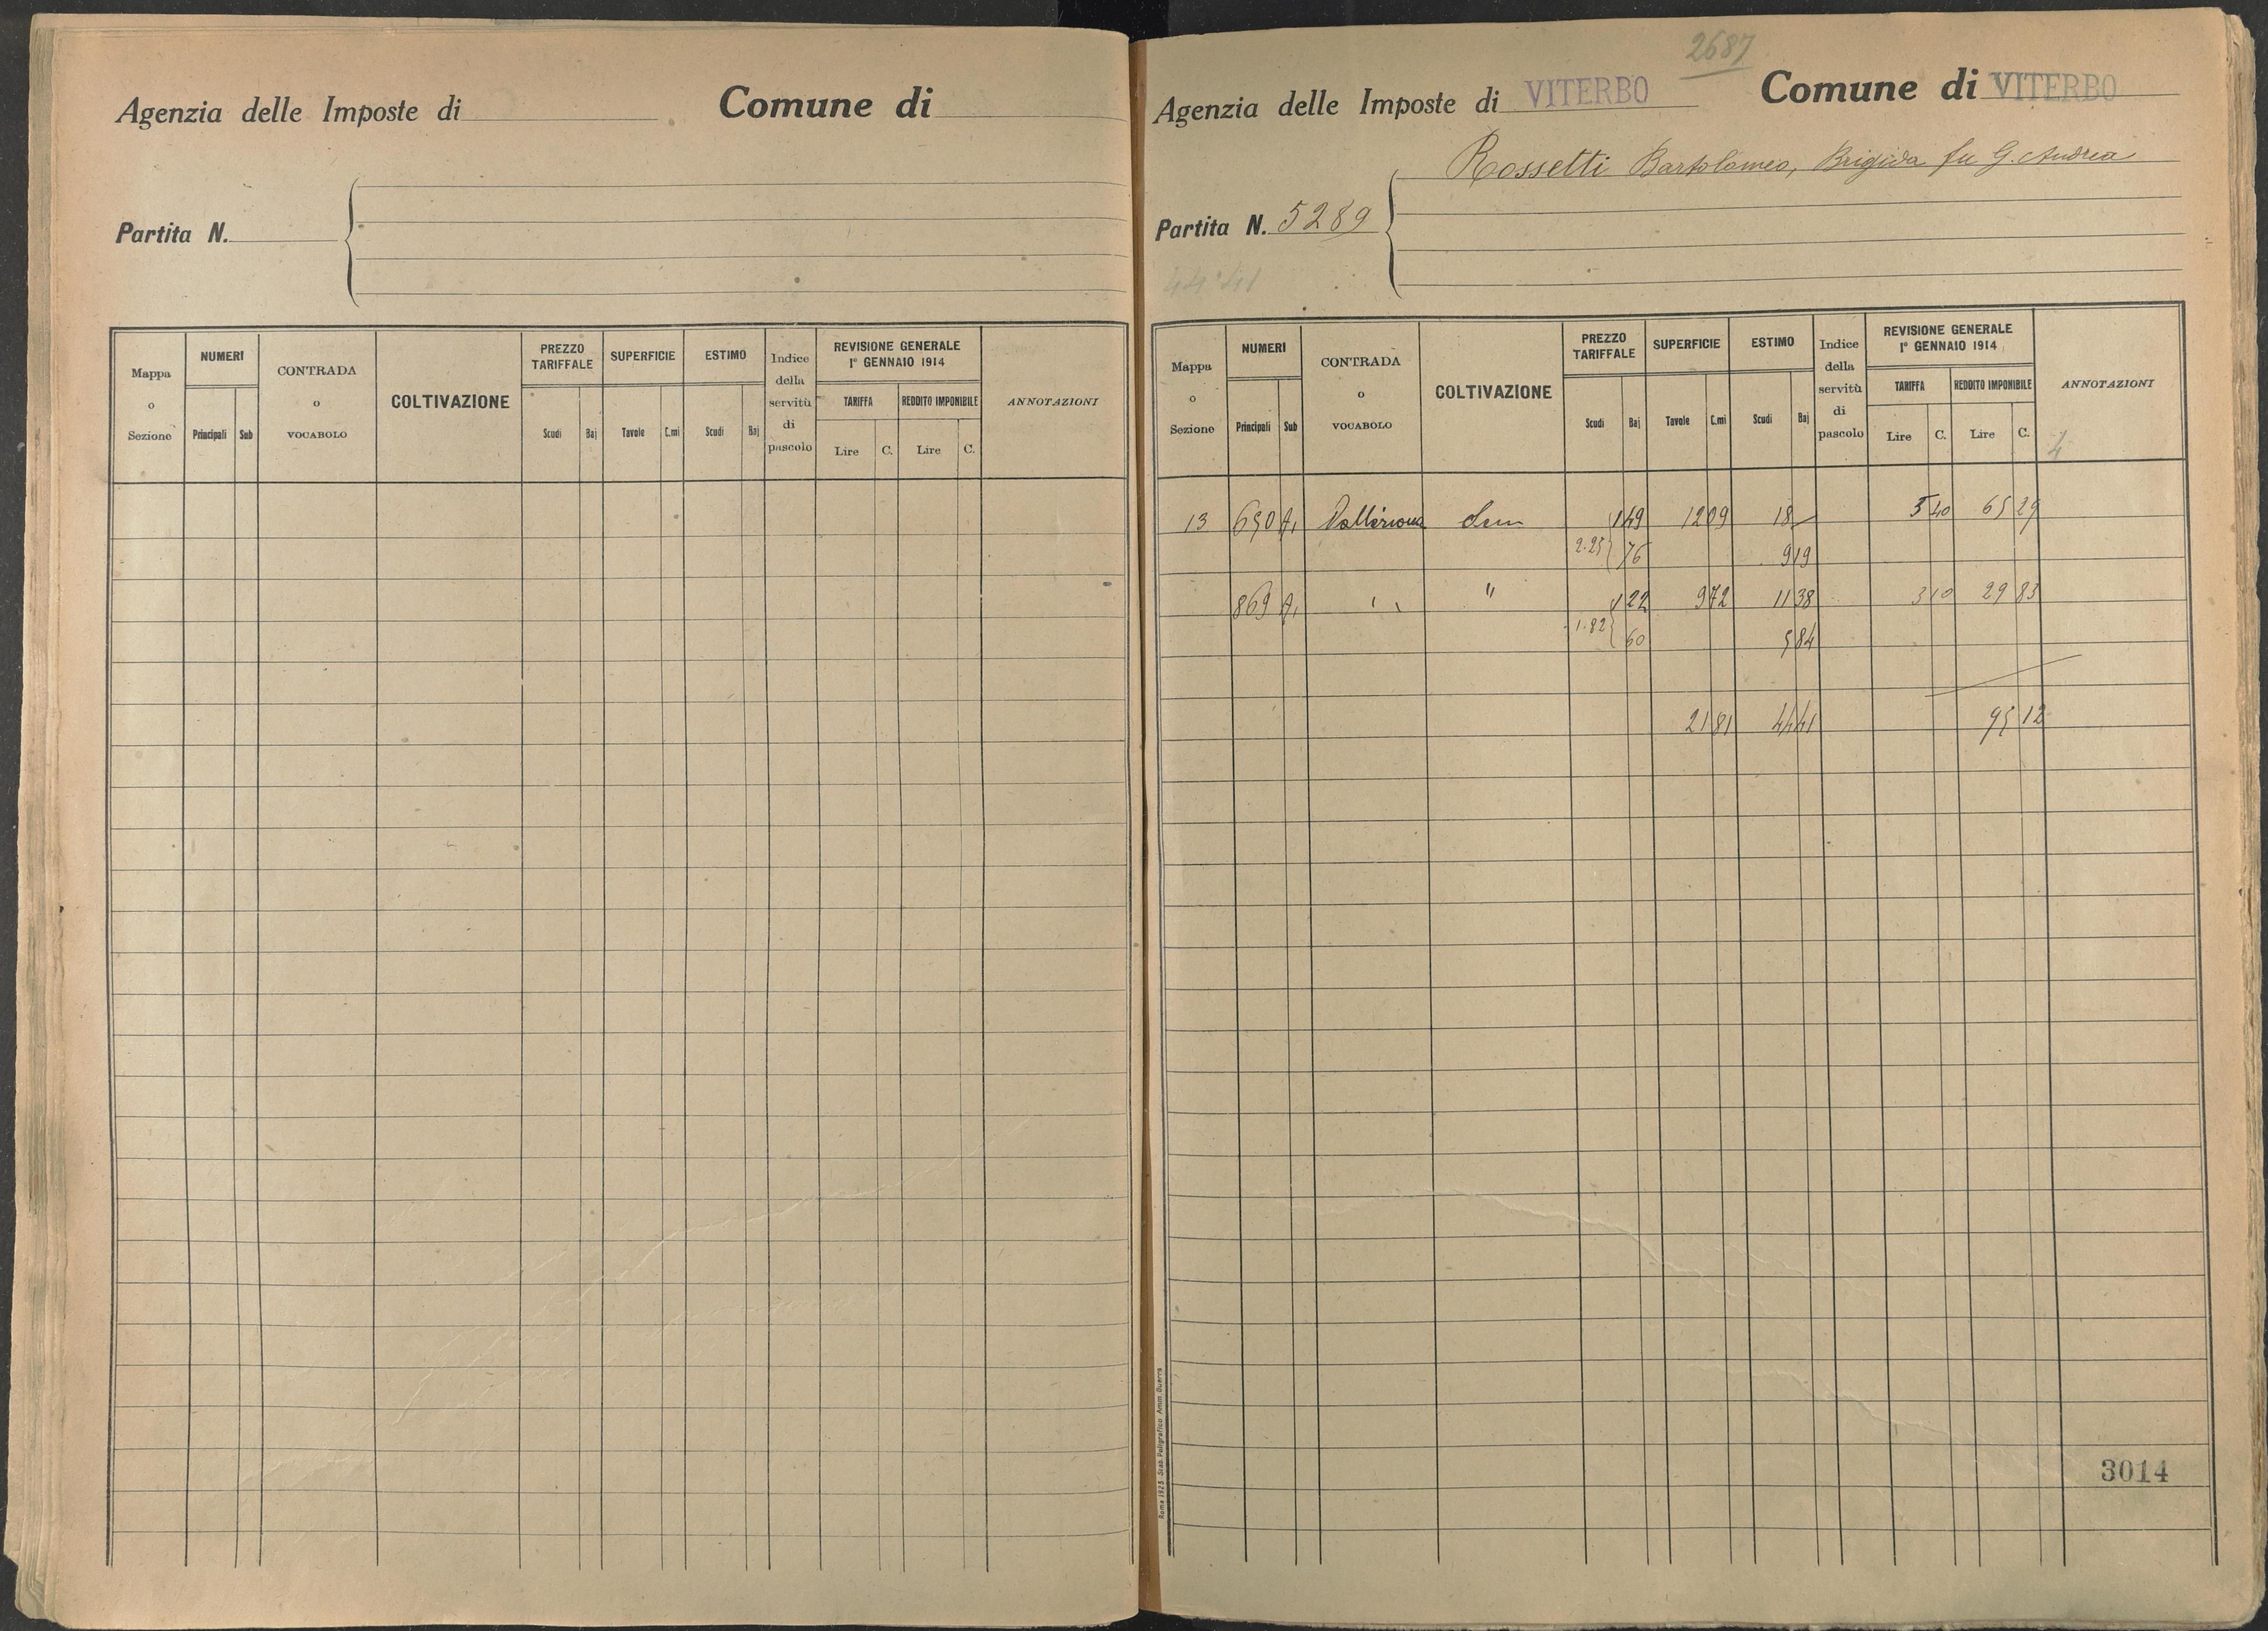 Agenzia delle Imposte di
Comune di
Partita N.
Mappa o Sezione
NUMERI
Principali Sub
CONTRADA o VOCABOLO
COLTIVAZIONE
PREZZO TARIFFALE
Scudi Baj
SUPERFICIE
Tavole C.mi
ESTIMO
Scudi Baj
Indice della servitù di pascolo
REVISIONE GENERALE
1° GENNAIO 1914
TARIFFA REDDITO IMPONIBILE
Lire C. Lire C.
ANNOTAZIONI
2687
Agenzia delle Imposte di VITERBO
Comune di VITERBO
Rossetti Bartolomeo, Brigida fu G. Andrea
Partita N. 5289
44'41
Mappa o Sezione
NUMERI
Principali Sub
CONTRADA o VOCABOLO
COLTIVAZIONE
PREZZO TARIFFALE
Scudi Baj
SUPERFICIE
Tavole C.mi
ESTIMO
Scudi Baj
Indice della servitù di pascolo
REVISIONE GENERALE
1° GENNAIO 1914
TARIFFA REDDITO IMPONIBILE
Lire C. Lire C.
ANNOTAZIONI
13 690 1 49 12 09 18 — 5 40 65 29
2.25 76 9 19
869 " 1 22 9 72 11 38 3 10 29 83
1.82 60 5 84
21 81 44 41 95 12
Roma 1923 Stab. Poligrafico Amm. Guerra
3014